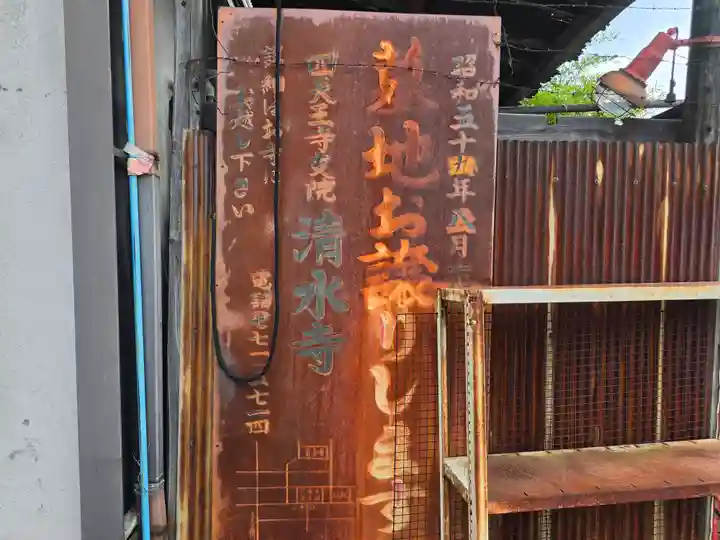 昭和五十五年八月
墓地お譲りします
四天王寺支院 清水寺
詳細は当寺に
お越し下さい
電話七七一
七一四